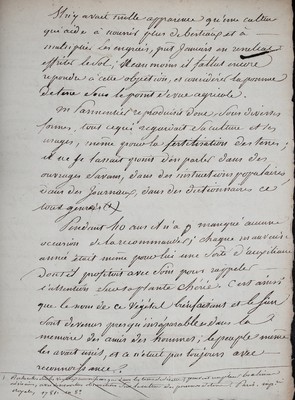 Il n'y avait nulle apparence qu'une culture
qui aide à nourrir plus de bestiaux et à
multiplier les engrais, put jamais en
effriter le sol; Néanmoins il fallut encore
repondre à cette objection, et considérer la pomme
de terre sous le point de vue agricole.
M. Parmentier reproduisit donc, sous diverses
formes, tout ce qui regardait sa culture et ses
usages, même pour la fertilisation des terres;
il ne se lassait point d'en parler dans des
ouvrages savans, dans des instructions populaires,
dans des Journaux, dans des dictionnaires de
tous genres (1)
Pendant 40 ans il n'a manqué aucune
occasion de la recommander; chaque mauvaise
année était même pour lui une sorte d'auxiliaire
dont il profitoit avec soin pour rappeler
l'attention sur sa plante chérie. C'est ainsi
que le nom de ce végétal bienfaisant et le sien
sont devenus presqu'inséparables dans la
memoire des amis des hommes; le peuple même
les avait unis, et ce n'étoit pas toujours avec
reconnaissance.
1.